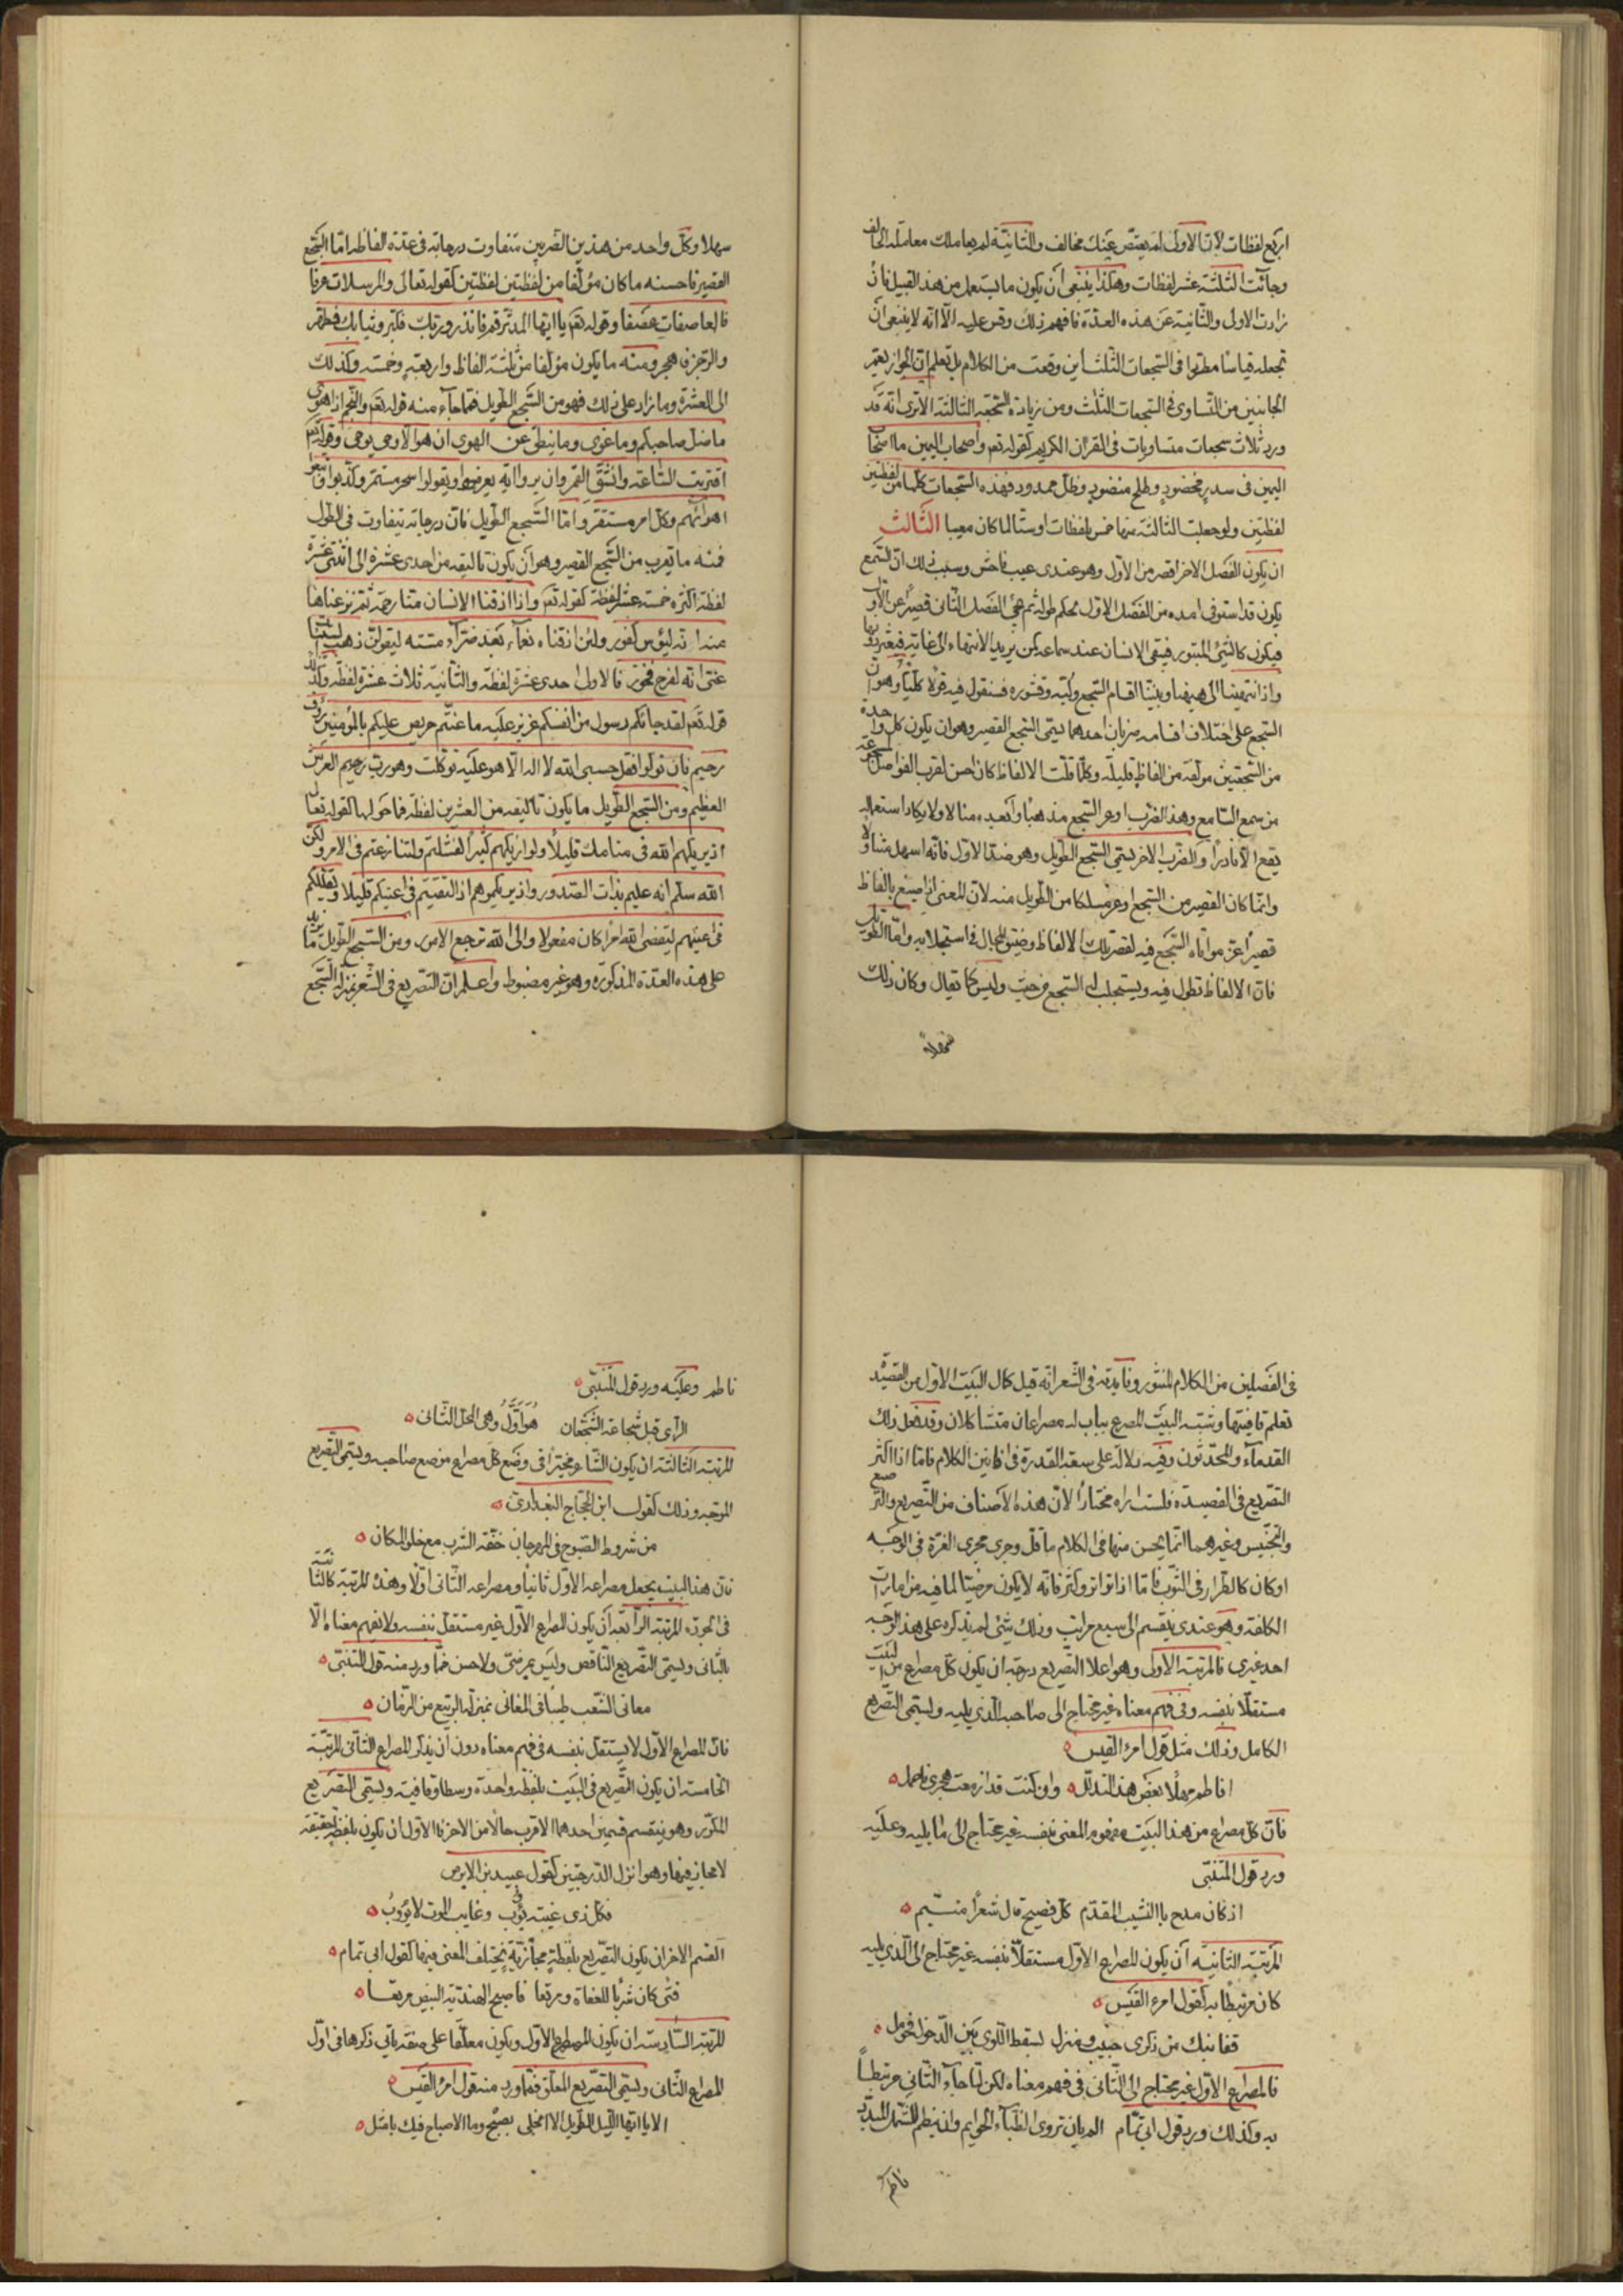 اربع لفظات لانّ الاولى لم يعتض عنك مخالف والثّانية لم يعاملك معاملة الحالف
وجاءت الثلثة عشر لفظات وهكذا ينبغى ان يكون ما يستعمل من هذا القبيل فان
زادت الاولى والثّانية عن هذه العدّة فافهم ذلك وقس عليه الّا انّه لا ينبغى ان
تجعله قياسا مطّردا فى السّجعات الثّلث اين وقعت من الكلام بل تعلم انّ الجواز يعمّ
الجانبين من التّساوى فى السّجعات الثّلث ومن زيادة السّجعة الثالثة الا ترى انّه قد
ورد ثلاث سجعات متساويات فى القران الكريم كقوله تعـ واصحاب اليمين ما اصحاب
اليمين فى سدر مخضود وطلح منضود وظلّ ممدود فهذه السّجعات كلّها من لفظتين
لفظتين ولو جعلت الثالثة منها خمس لفظات اوستّا لما كان معيبا الثّالث
ان يكون الفصل الاخر اقصر من الاوّل وهو عندى عيب فاحش وسبب ذلك انّ السّمع
يكون قد استوفى امده من الفصل الاوّل بحكم طوله ثم يجئ الفصل الثّانى قصيرًا عن الاوّل
فيكون كالشّئ المبتور فيبقى الانسان عند سماعه كمن يريد الانتهاء الى غاية فيعثر دونها
واذا انتهينا الى هيهنا وبيّنّا اقسام السّجع ولُبّه وقشوره فسنقول فيه قولا كلّيّاً وهو انّ
السّجع على اختلاف اقسامه ضربان احدهما يسمّى السّجع القصير وهو ان يكون كلّ واحدة
من السّجعتين مولّفة من الفاظ قليلة وكلّما قلّت الالفاظ كان احسن لقرب الفواصل المسجوعة
من سمع السّامع وهذا الضّرب اوعر السّجع مذهبًا وابعده منالا ولا يكاد استعماله
يقع الّا نادرًا والضّرب الاخر يسمّى السّجع الطّويل وهو ضدّ الاوّل فانّه اسهل متناولًا
وانّما كان القصير من السّجع اوعر مسلكا من الطّويل منه لانّ المعنى اذا صيغ بالفاظ
قصيرًا عزّ مواتاة السّجع فيه لقصر تلك الالفاظ وضيق المجال فى استجلابه وامّا الطّويل
فانّ الالفاظ تطول فيه ويستجلب له السّجع من حيث وليس كما يقال وكان ذلك
سهلا
سهلا وكلّ واحد من هذين الضّربين متفاوت درجاته فى عدّة الفاظه امّا السّجع
القصير فاحسنه ما كان مؤلّفا من لفظتين لفظتين كقوله تعالى والمرسلات عرفا
فالعاصفات عصفا وقوله تعـ يا ايّها المدّثّر قم فانذر وربّك فكبّر وثيابك فطهّر
والرّجز فاهجر ومنه ما يكون مؤلّفا من ثلثة الفاظ واربعة وخمسة وكذلك
الى العشرة وما زاد على ذلك فهو من السّجع الطّويل فممّا جاء منه قوله تعـ والنّجم اذا هوى
ما ضلّ صاحبكم وما غوى وما ينطق عن الهوى ان هو الّا وحى يوحى وقوله تعـ
اقتربت السّاعة وانشقّ القمر وان يروا اية يعرضوا ويقولوا سحر مستمرّ وكذّبوا واتّبعوا
اهوائهم وكلّ امر مستقرّ وامّا السّجع الطّويل فانّ درجاته تتفاوت فى الطّول
فمنه ما يقرب من السّجع القصير وهو ان يكون تاليفه من احدى عشرة الى اثنتى عشرة
لفظة اكثره خمسة عشر لفظة كقوله تعـ واذا اذقنا الانسان منّا رحمة ثمّ نزعناها
منه انه ليؤس كفور ولئن اذقناه نعماء بعد ضرّاء مسّته ليقولنّ ذهب السّيّئات
عنّى انّه لفرح فخور فالاولى احدى عشرة لفظة والثّانية ثلاث عشرة لفظة وكذلك
قوله تعـ لقد جائكم رسول من انفسكم عزيز عليه ما عنتّم حريص عليكم بالمؤمنين رؤف
رحيم فان تولّوا فقل حسبى الله لا اله الّا هو عليه توكّلت وهو ربّ العرش
العظيم ومن السّجع الطّويل ما يكون تاليفه من العشرين لفظة فما حولها كقوله تعالى
اذ يريكهم الله فى منامك قليلًا ولو اريكهم كثيرًا لفشلتم ولتنازعتم فى الامر ولكن
الله سلّم انه عليم بذات الصّدور واذ يريكموهم اذ التقيتم فى اعينكم قليلا ويقلّلكم
فى اعينهم ليقضى الله امرًا كان مفعولا والى الله ترجع الامور ومن السّجع الطّويل ما يزيد
على هذه العدّة المذكورة وهو غير مضبوط واعلم انّ التّصريع فى الشّعر بمنزلة السّجع
فى الفصلين من الكلام المنثور وفائدته فى الشّعر انّه قبل كمال البيت الاوّل من القصيدة
تعلم قافيتها وشبّه البيت المصرع بباب له مصراعان متشاكلان وقد فعل ذلك
القدماء والمحدثون وفيه دلالة على سعة القدرة فى افانين الكلام فامّا اذا اكثر
التّصريع فى القصيدة فلست اراه مختارًا لانّ هذه الاصناف من التّصريع والترصيع
والتّجنيس وغيرهما انّما يحسن منها فى الكلام ما قلّ وجرى مجرى الغرّة فى الوجه
اوكان كالطّراز فى الثّوب فامّا اذا تواتر وكثر فانّه لا يكون مرضيّا لما فيه من امارات
الكلفة وهو عندى ينقسم الى سبع مراتب وذلك شئ لم يذكره على هذا الوجه
احد غيرى فالمرتبة الاولى وهو اعلا التّصريع درجة ان يكون كلّ مصراع من البيت
مستقلّا بنفسه وفى فهم معناه غير محتاج الى صاحبه الّذى يليه ويسمّى التّصريع
الكامل وذلك مثل قول امرء القيس
افاطم مهلًا بعض هذا التدلّل وان كنت قد ازمعت هجرى فاجملى
فانّ كلّ مصراع من هذا البيت مفهوم المعنى بنفسه غير محتاج الى ما يليه وعليه
ورد قول المتنبّى
اذ كان مدح باالنّسيب المقدّم كلّ فصيح قال شعرًا متيّم
المرتبة الثّانية ان يكون المصراع الاوّل مستقلّا بنفسه غير محتاج الى الّذى يليه
كان مرتبطًا به كقول امرء القيس
قفا نبك من ذكرى حبيب ومنزل بسقط اللّوى بين الدّخول فحومل
فالمصراع الاوّل غير محتاج الى الثّانى فى فهم معناه لكن لمّا جاء الثّانى مرتبطًا
به وكذلك ورد قول ابى تمّام الم يان تروى الظّماء الحوايم وان ينظم الشّمل المبدّد
ناظم
ناظم وعليه ورد قول المتنبّى
الرأى قبل شجاعة الشّجعان هو اوّل وهى المحل الثّانى
المرتبة الثالثة ان يكون الشّاعر مخيّرًا فى وضع كلّ مصراع موضع صاحبه ويسمّى التّصريع
الموجّه وذلك كقول ابن الحجّاج البغدادى
من شروط الصّبوح فى المهرجان خفّة الشّرب مع خلوّ المكان
فانّ هذا البيت يجعل مصراعه الاوّل ثانيًا ومصراعه الثّانى اوّلًا وهذه المرتبة كالثّانية
فى الجودة المرتبة الرّابعة ان يكون المصراع الاوّل غير مستقلّ بنفسه ولا يفهم معناه الّا
بالثّانى ويسمّى التّصريع النّاقص وليس بمرضىّ ولا حسن فممّا ورد منه قول المتنبّى
معانى الشّعب طيبًا فى المغانى بمنزلة الرّبيع من الزّمان
فانّ المصراع الاوّل لا يستقلّ بنفسه فى فهم معناه دون ان يذكر المصراع الثّانى المرتبة
الخامسة ان يكون التّصريع فى البيت بلفظة واحدة وسطا وقافية ويسمّى التّصريع
المكرّر وهو ينقسم قسمين احدهما الاقرب حالًا من الاخر فالاوّل ان يكون بلفظة حقيقة
لا مجاز فيها وهو انزل الدّرجتين كقول عبيد بن الابرص
فكلّ ذى غيبة يؤوب وغايب الموت لا يؤوب
القسم الاخر ان يكون التّصريع بلفظة مجازيّة يختلف المعنى فيها كقول ابى تمام
فتًى كان شربًا للعفاة ومرتعا فاصبح للهنديّة البيض مرتعا
المرتبة السّادسة ان يكون المصراع الاوّل ويكون معلّقا على صفة ياتى ذكرها فى اوّل
المصراع الثّانى ويسمّى التّصريع المعلّق فممّا ورد منه قول امرء القيس
الا يا ايّها اللّيل الطّويل الا انجلى بصبح وما الاصباح فيك بامثل